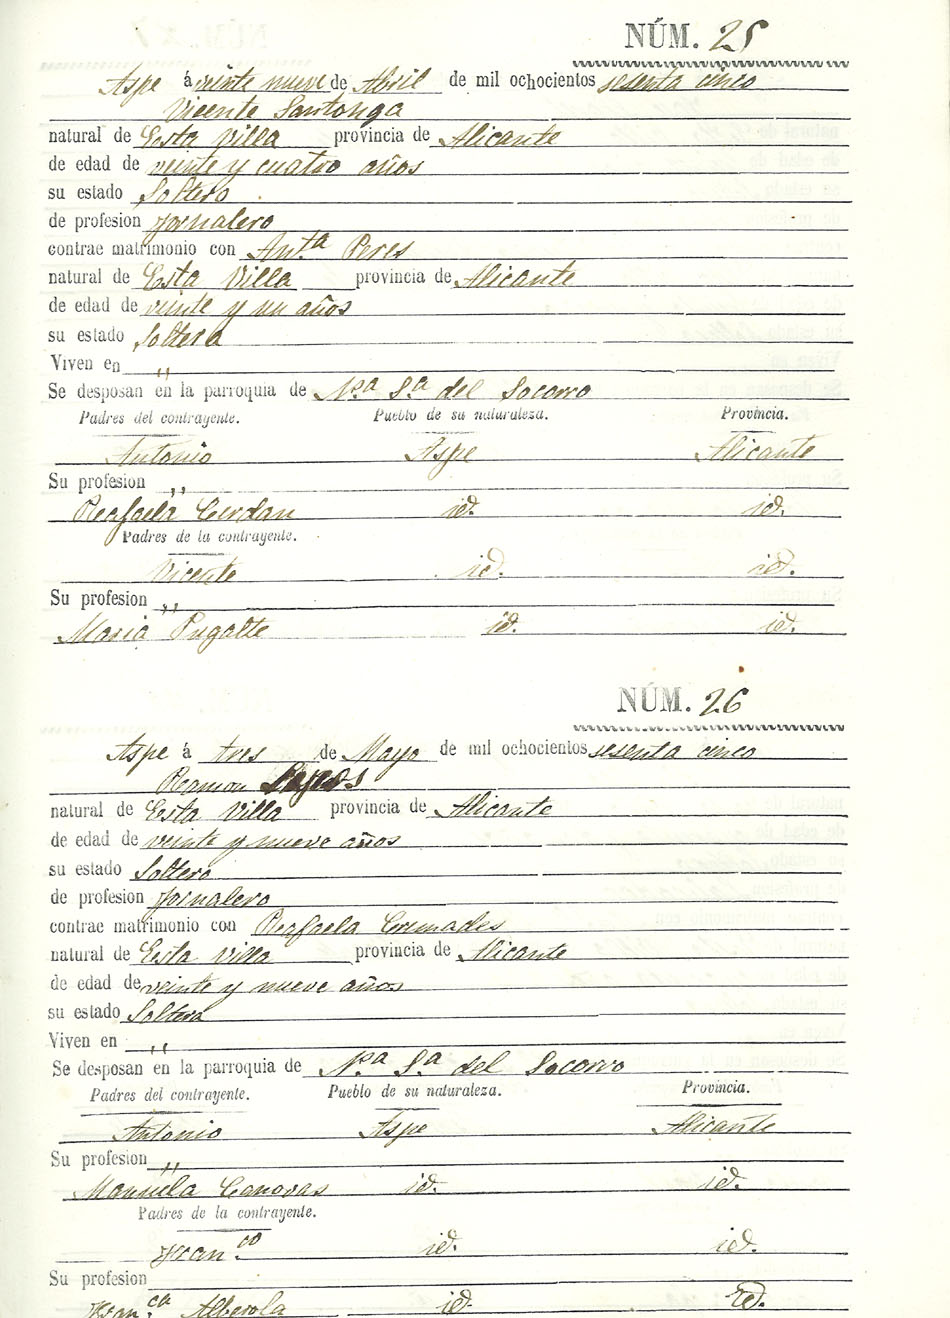 NÚM. 25
Aspe á veinte nueve de Abril de mil ochocientos sesenta cinco
Vicente Santonga
natural de Esta Villa provincia de Alicante
de edad de veinte y cuatro años
su estado Soltero
de profesion Jornalero
contrae matrimonio con Ant.ª Peres
natural de Esta Villa provincia de Alicante
de edad de veinte y un años
su estado Soltera
Viven en ,,
Se desposan en la parroquia de N.ª S.ª del Socorro
Padres del contrayente. Pueblo de su naturaleza. Provincia.
Antonio Aspe Alicante
Su profesion ,,
Reafaela Cerdan id. id.
Padres de la contrayente.
Vicente id. id.
Su profesion ,,
Maria Pugalte id. id.
NÚM. 26
Aspe á tres de Mayo de mil ochocientos sesenta cinco
Reamon
natural de Esta Villa provincia de Alicante
de edad de veinte y nueve años
su estado Soltero
de profesion Jornalero
contrae matrimonio con Reafaela Cremades
natural de Esta Villa provincia de Alicante
de edad de veinte y nueve años
su estado Soltera
Viven en ,,
Se desposan en la parroquia de N.ª S.ª del Socorro
Padres del contrayente. Pueblo de su naturaleza. Provincia.
Antonio Aspe Alicante
Su profesion ,,
Manuela Canovas id. id.
Padres de la contrayente.
Fran.co id. id.
Su profesion
Fran.ca Alberola id. id.